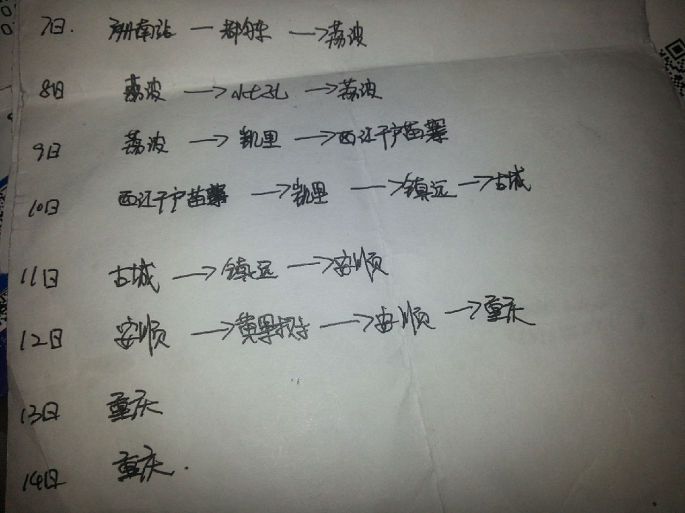 7日. 广州南站 — 都匀东 → 荔波
8日 荔波 → 小七孔 → 荔波
9日 荔波 → 凯里 → 西江千户苗寨
10日 西江千户苗寨 → 凯里 → 镇远 → 古城
11日 古城 → 镇远 → 安顺
12日 安顺 → 黄果树 → 安顺 → 重庆
13日 重庆
14日 重庆.